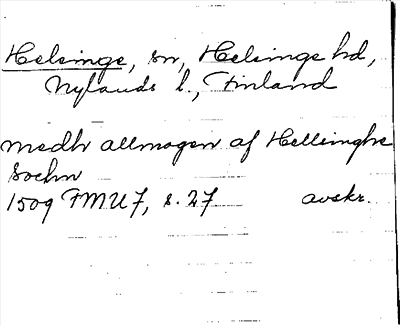 Helsinge, sn, Helsinge hd,
Nylands l., Finland
medh allmogen af Hellinghe
sochn
1509 FMU 7, s. 27 avskr.